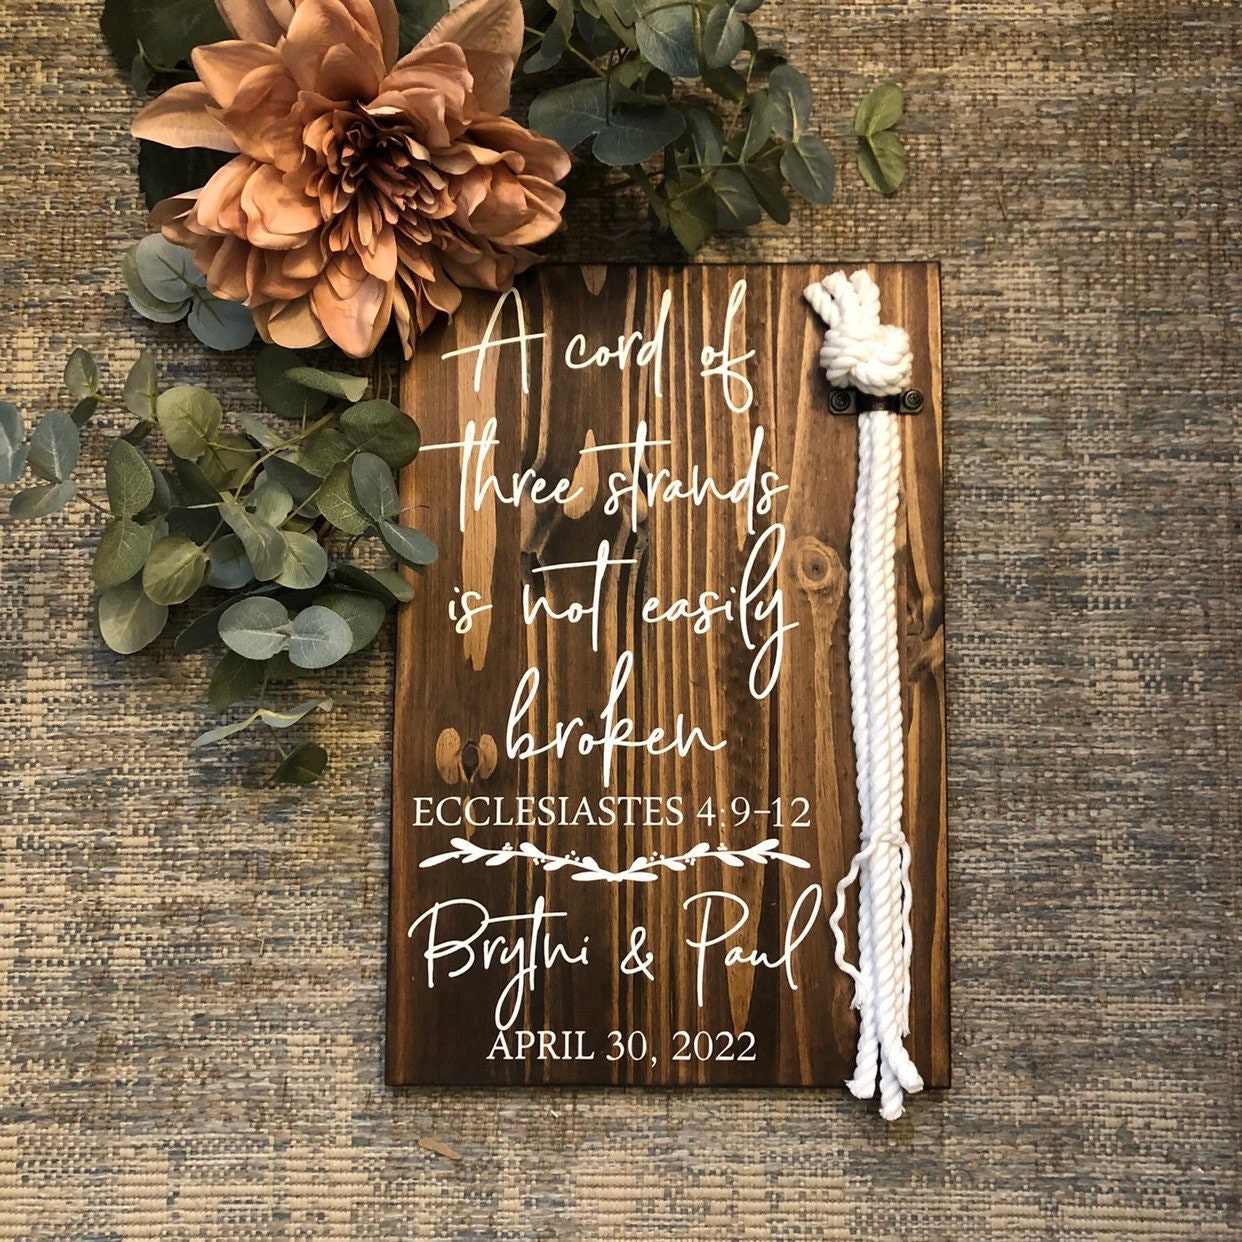 A cord of
three strands
is not easily
broken
ECCLESIASTES 4:9-12
Brytni & Paul
APRIL 30, 2022